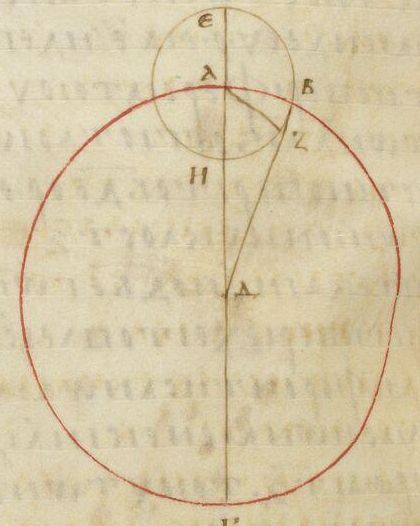 Ε
Α
Β
Ζ
Η
Δ